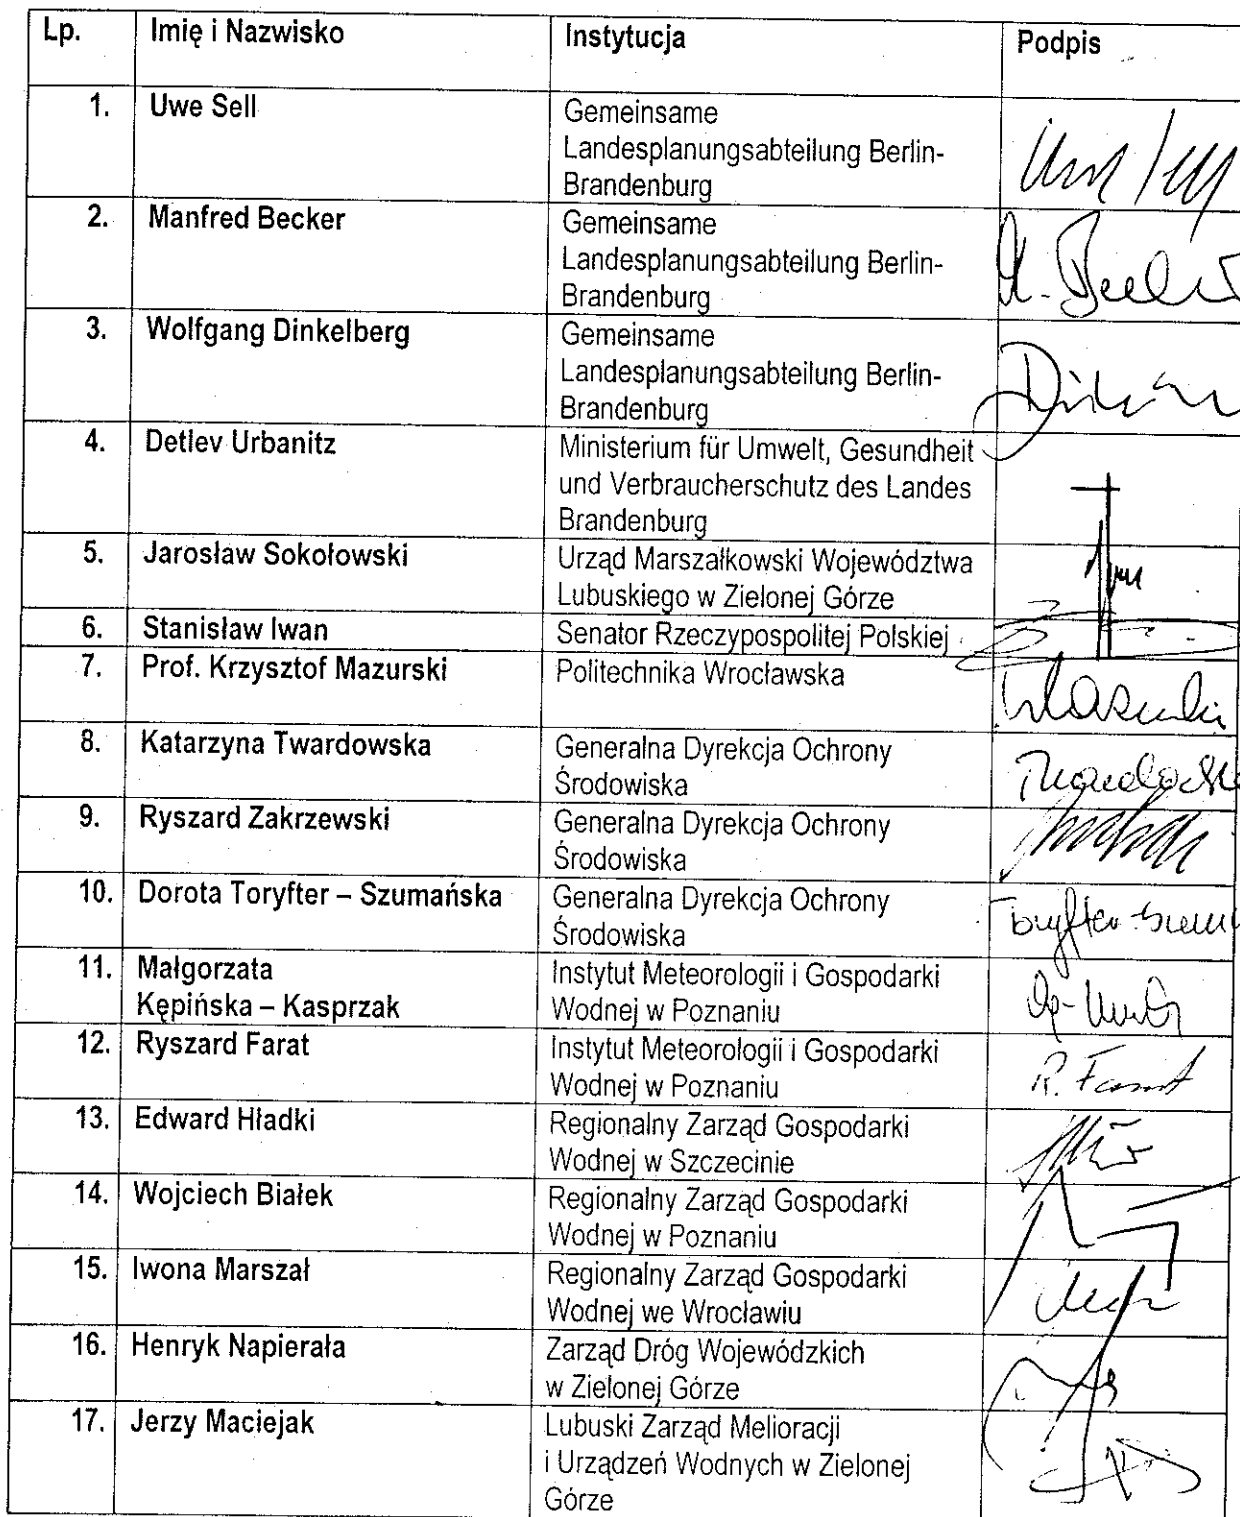 Lp. Imię i Nazwisko Instytucja Podpis
1. Uwe Sell Gemeinsame
Landesplanungsabteilung Berlin-
Brandenburg
2. Manfred Becker Gemeinsame
Landesplanungsabteilung Berlin-
Brandenburg
3. Wolfgang Dinkelberg Gemeinsame
Landesplanungsabteilung Berlin-
Brandenburg
4. Detlev Urbanitz Ministerium für Umwelt, Gesundheit
und Verbraucherschutz des Landes
Brandenburg
5. Jarosław Sokołowski Urząd Marszałkowski Województwa
Lubuskiego w Zielonej Górze
6. Stanisław Iwan Senator Rzeczypospolitej Polskiej
7. Prof. Krzysztof Mazurski Politechnika Wrocławska
8. Katarzyna Twardowska Generalna Dyrekcja Ochrony
Środowiska
9. Ryszard Zakrzewski Generalna Dyrekcja Ochrony
Środowiska
10. Dorota Toryfter – Szumańska Generalna Dyrekcja Ochrony
Środowiska
11. Małgorzata Instytut Meteorologii i Gospodarki
Kępińska – Kasprzak Wodnej w Poznaniu
12. Ryszard Farat Instytut Meteorologii i Gospodarki R. Farat
Wodnej w Poznaniu
13. Edward Hładki Regionalny Zarząd Gospodarki
Wodnej w Szczecinie
14. Wojciech Białek Regionalny Zarząd Gospodarki
Wodnej w Poznaniu
15. Iwona Marszał Regionalny Zarząd Gospodarki
Wodnej we Wrocławiu
16. Henryk Napierała Zarząd Dróg Wojewódzkich
w Zielonej Górze
17. Jerzy Maciejak Lubuski Zarząd Melioracji
i Urządzeń Wodnych w Zielonej
Górze